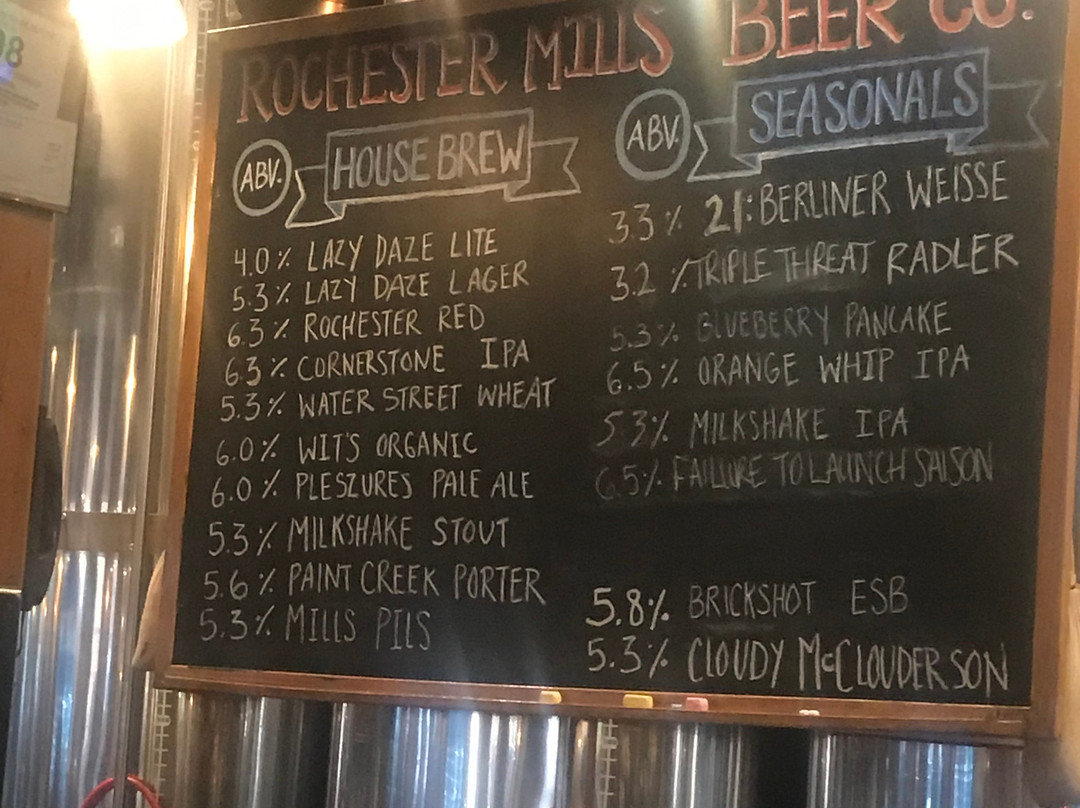 ROCHESTER MILLS BEER CO.
ABV. HOUSE BREW
4.0% LAZY DAZE LITE
5.3% LAZY DAZE LAGER
6.3% ROCHESTER RED
6.3% CORNERSTONE IPA
5.3% WATER STREET WHEAT
6.0% WIT'S ORGANIC
6.0% PLESZURES PALE ALE
5.3% MILKSHAKE STOUT
5.6% PAINT CREEK PORTER
5.3% MILLS PILS
ABV. SEASONALS
3.3% 21: BERLINER WEISSE
3.2% TRIPLE THREAT RADLER
5.3% BLUEBERRY PANCAKE
6.5% ORANGE WHIP IPA
5.3% MILKSHAKE IPA
6.5% FAILURE TO LAUNCH SAISON
5.8% BRICKSHOT ESB
5.3% CLOUDY McCLOUDERSON